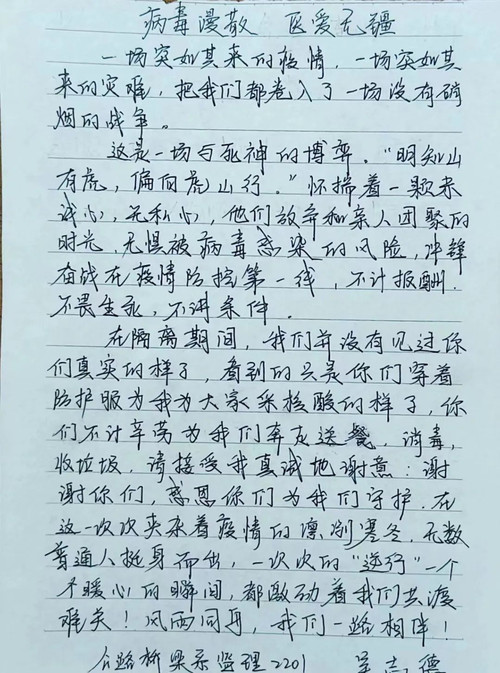 病毒漫散 医爱无疆
一场突如其来的疫情，一场突如其
来的灾难，把我们都卷入了一场没有硝
烟的战争。
这是一场与死神的博弈。“明知山
有虎，偏向虎山行。”怀揣着一颗赤
诚心，无私心，他们放弃和亲人团聚的
时光，无惧被病毒感染的风险，冲锋
奋战在疫情防控第一线，不计报酬.
不畏生死，不讲条件.
在隔离期间，我们并没有见过你
们真实的样子，看到的只是你们穿着
防护服为我为大家采核酸的样子，你
们不计辛劳为我们奔走送餐，消毒，
收垃圾，请接受我真诚地谢意：谢
谢你们，感恩你们为我们守护.在
这一次次夹杂着疫情的凛冽寒冬，无数
普通人挺身而出，一次次的“逆行”一个
个暖心的瞬间，都激动着我们共渡
难关！风雨同舟，我们一路相伴！
公路桥梁系监理2201 吴志德